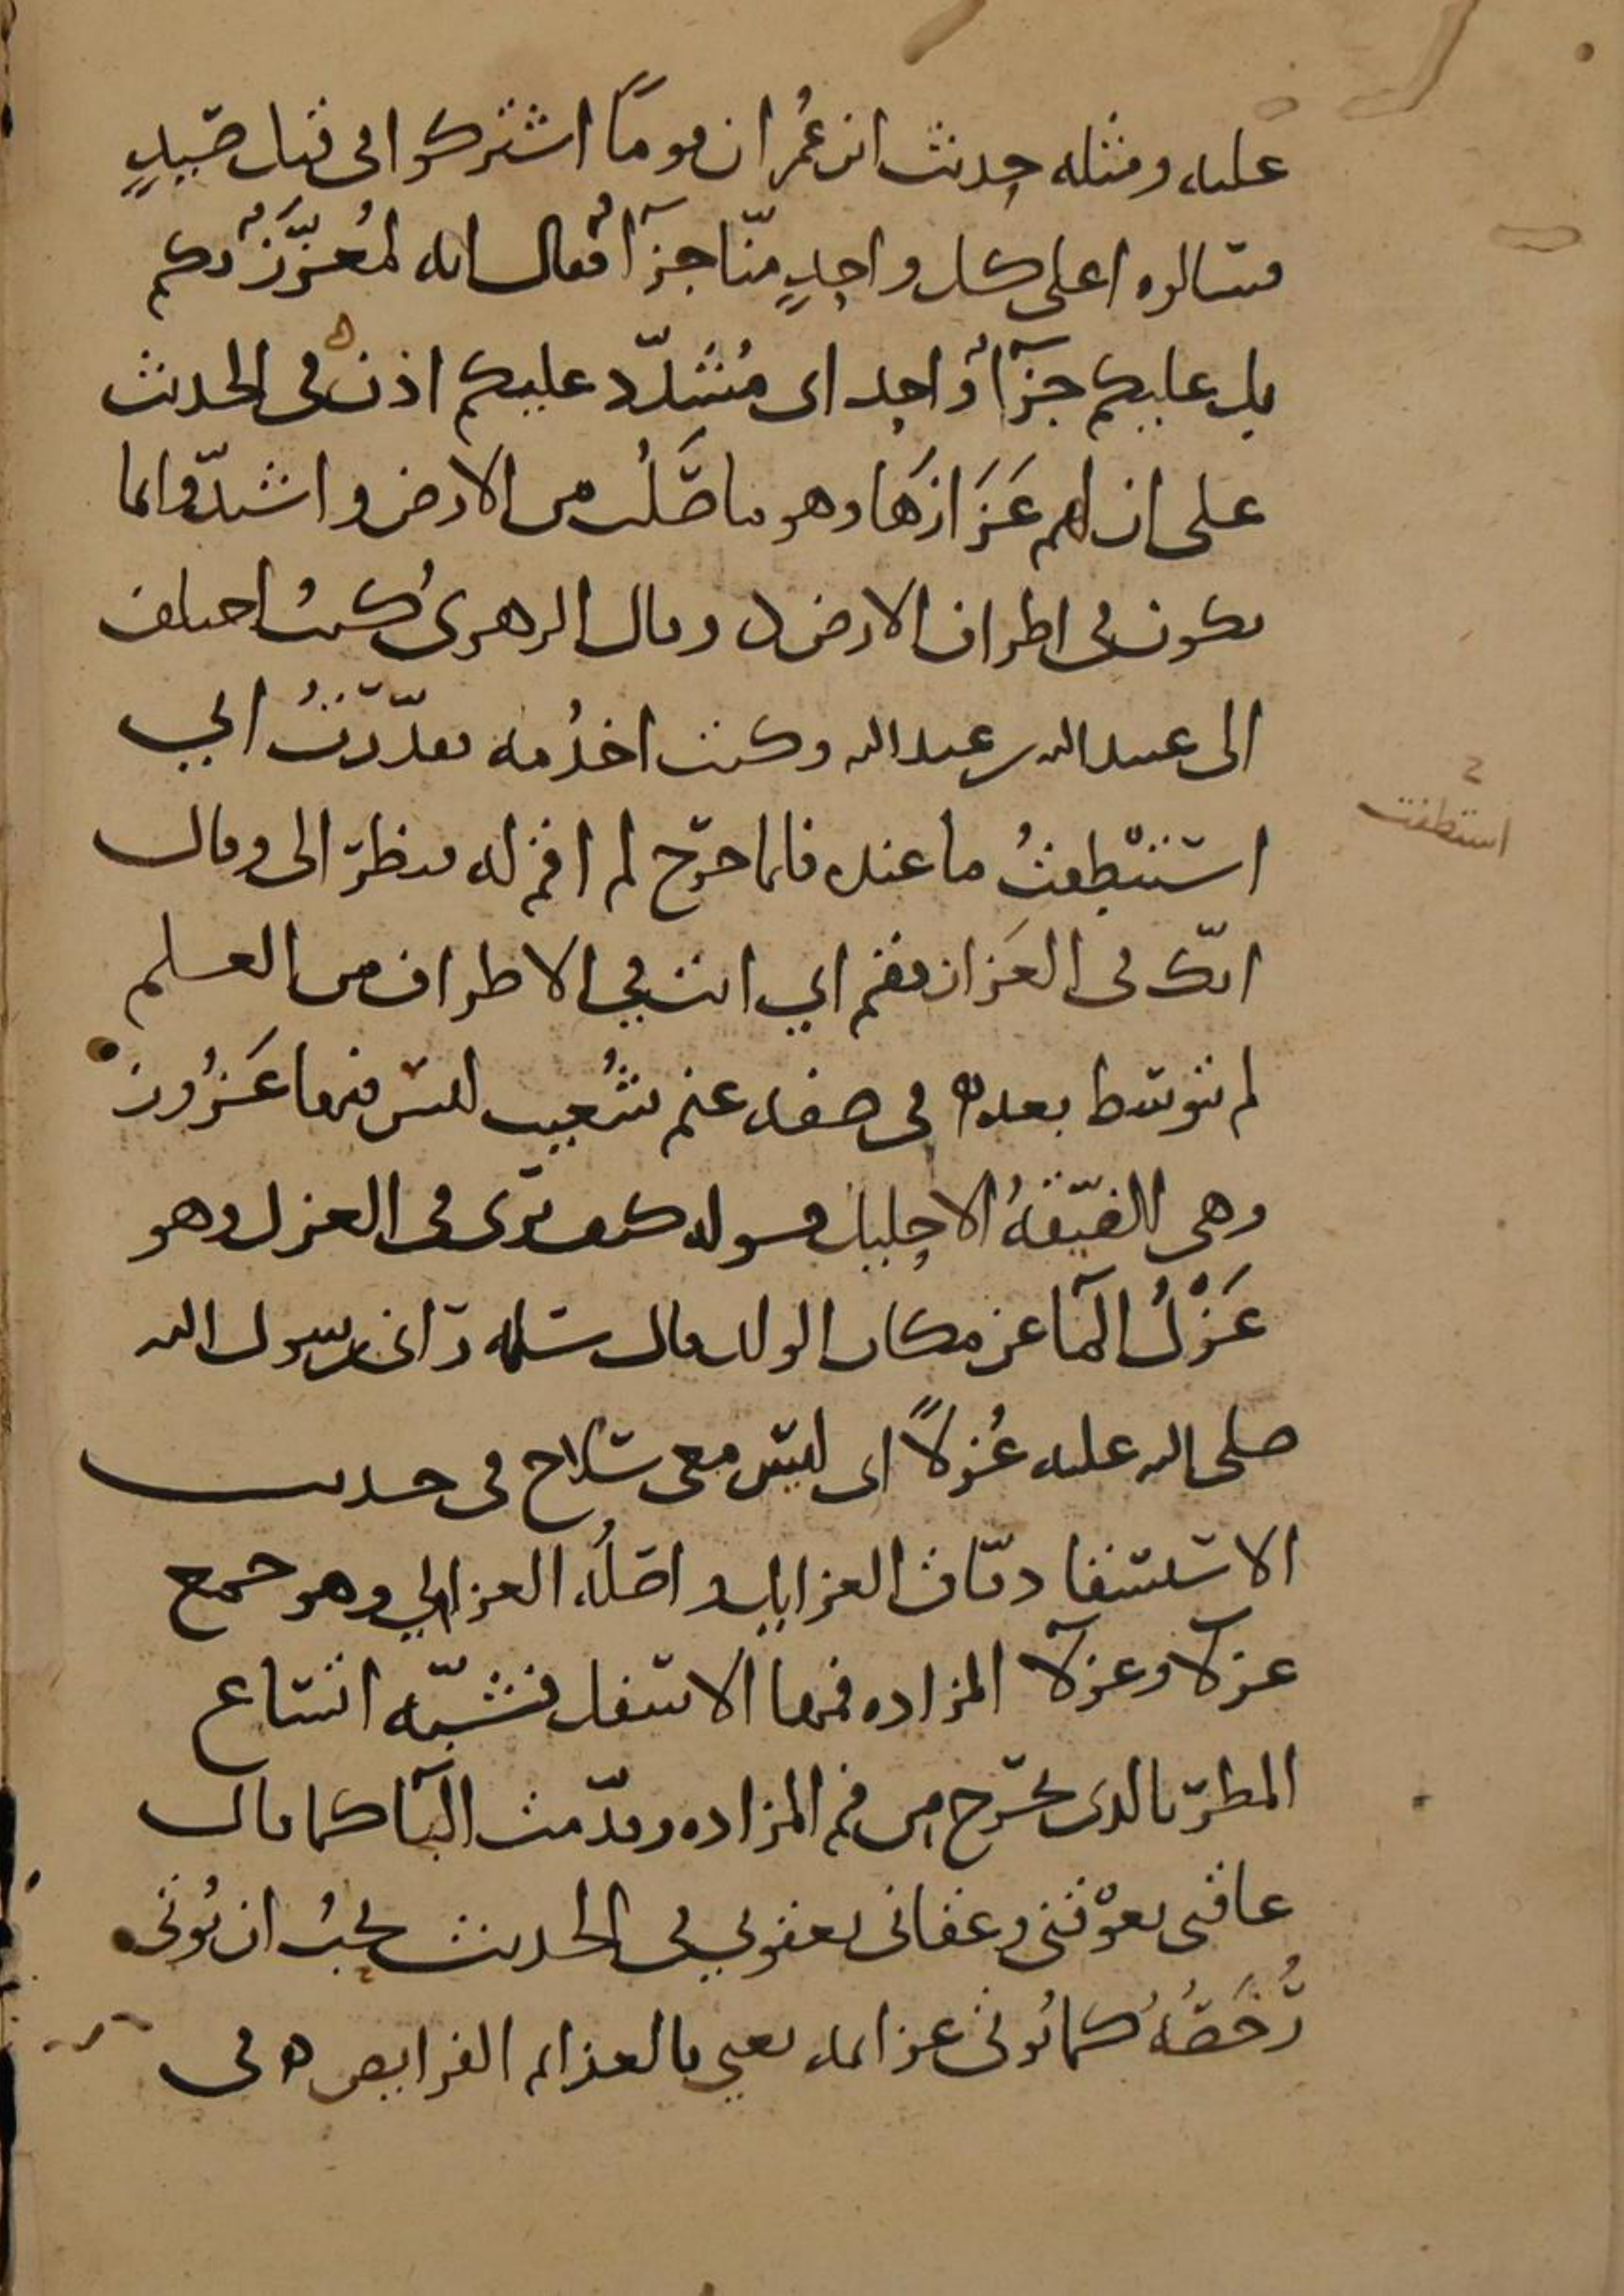 عليه ومثله حديث ابن عُمر ان قومًا اشتركوا في قتل صَيدٍ
فسالوه اعلى كل واحدٍ منّا جزآءٌ فقال انه لمُعَزَّزٌ بكم
بل عليكم جزآءٌ واحد اى مُشدّد عليكم اذن في الحديث
على ان لهم عَزَازَهَا وهو ما صَلُب من الارض واشتدّ وانما
يكون في اطراف الارض وقال الزهرى كنتُ اختلف
الى عبيد الله بن عبد الله وكنت اخدُمه فقدّرتُ انِّي
استَنْطفتُ ما عنده فلما خرج لم اقم له فنظر الى وقال
انّك في العَزاز فقم اي انت في الاطراف من العلم
لم تتوسط بعده في صفه غنم شُعيب ليس فيها عَزُوز
وهي الضيّقةُ الاحليل قوله كيف ترى في العزل وهو
عَزْلُ المآ عن مكان الولد قال سلمه رانى رسول الله
صلى الله عليه عُزلاً اى ليس معى سلاح في حديث
الاستسقا دفاق العزايل واصلُه العزالي وهو جمع
عزلآ وعزلآ المزاده فمها الاسفل فشبّه اتساع
المطر بالذى يخرج من فم المزاده وقدّمت اليآ كما قال
عاقنى يعوْقنى وعقانى يعقوني في الحديث يحبُ ان تُوتى
رُخَصُهُ كما تُوتى عزائمه يعني بالعزائم الفرايض ه في
استنطفت